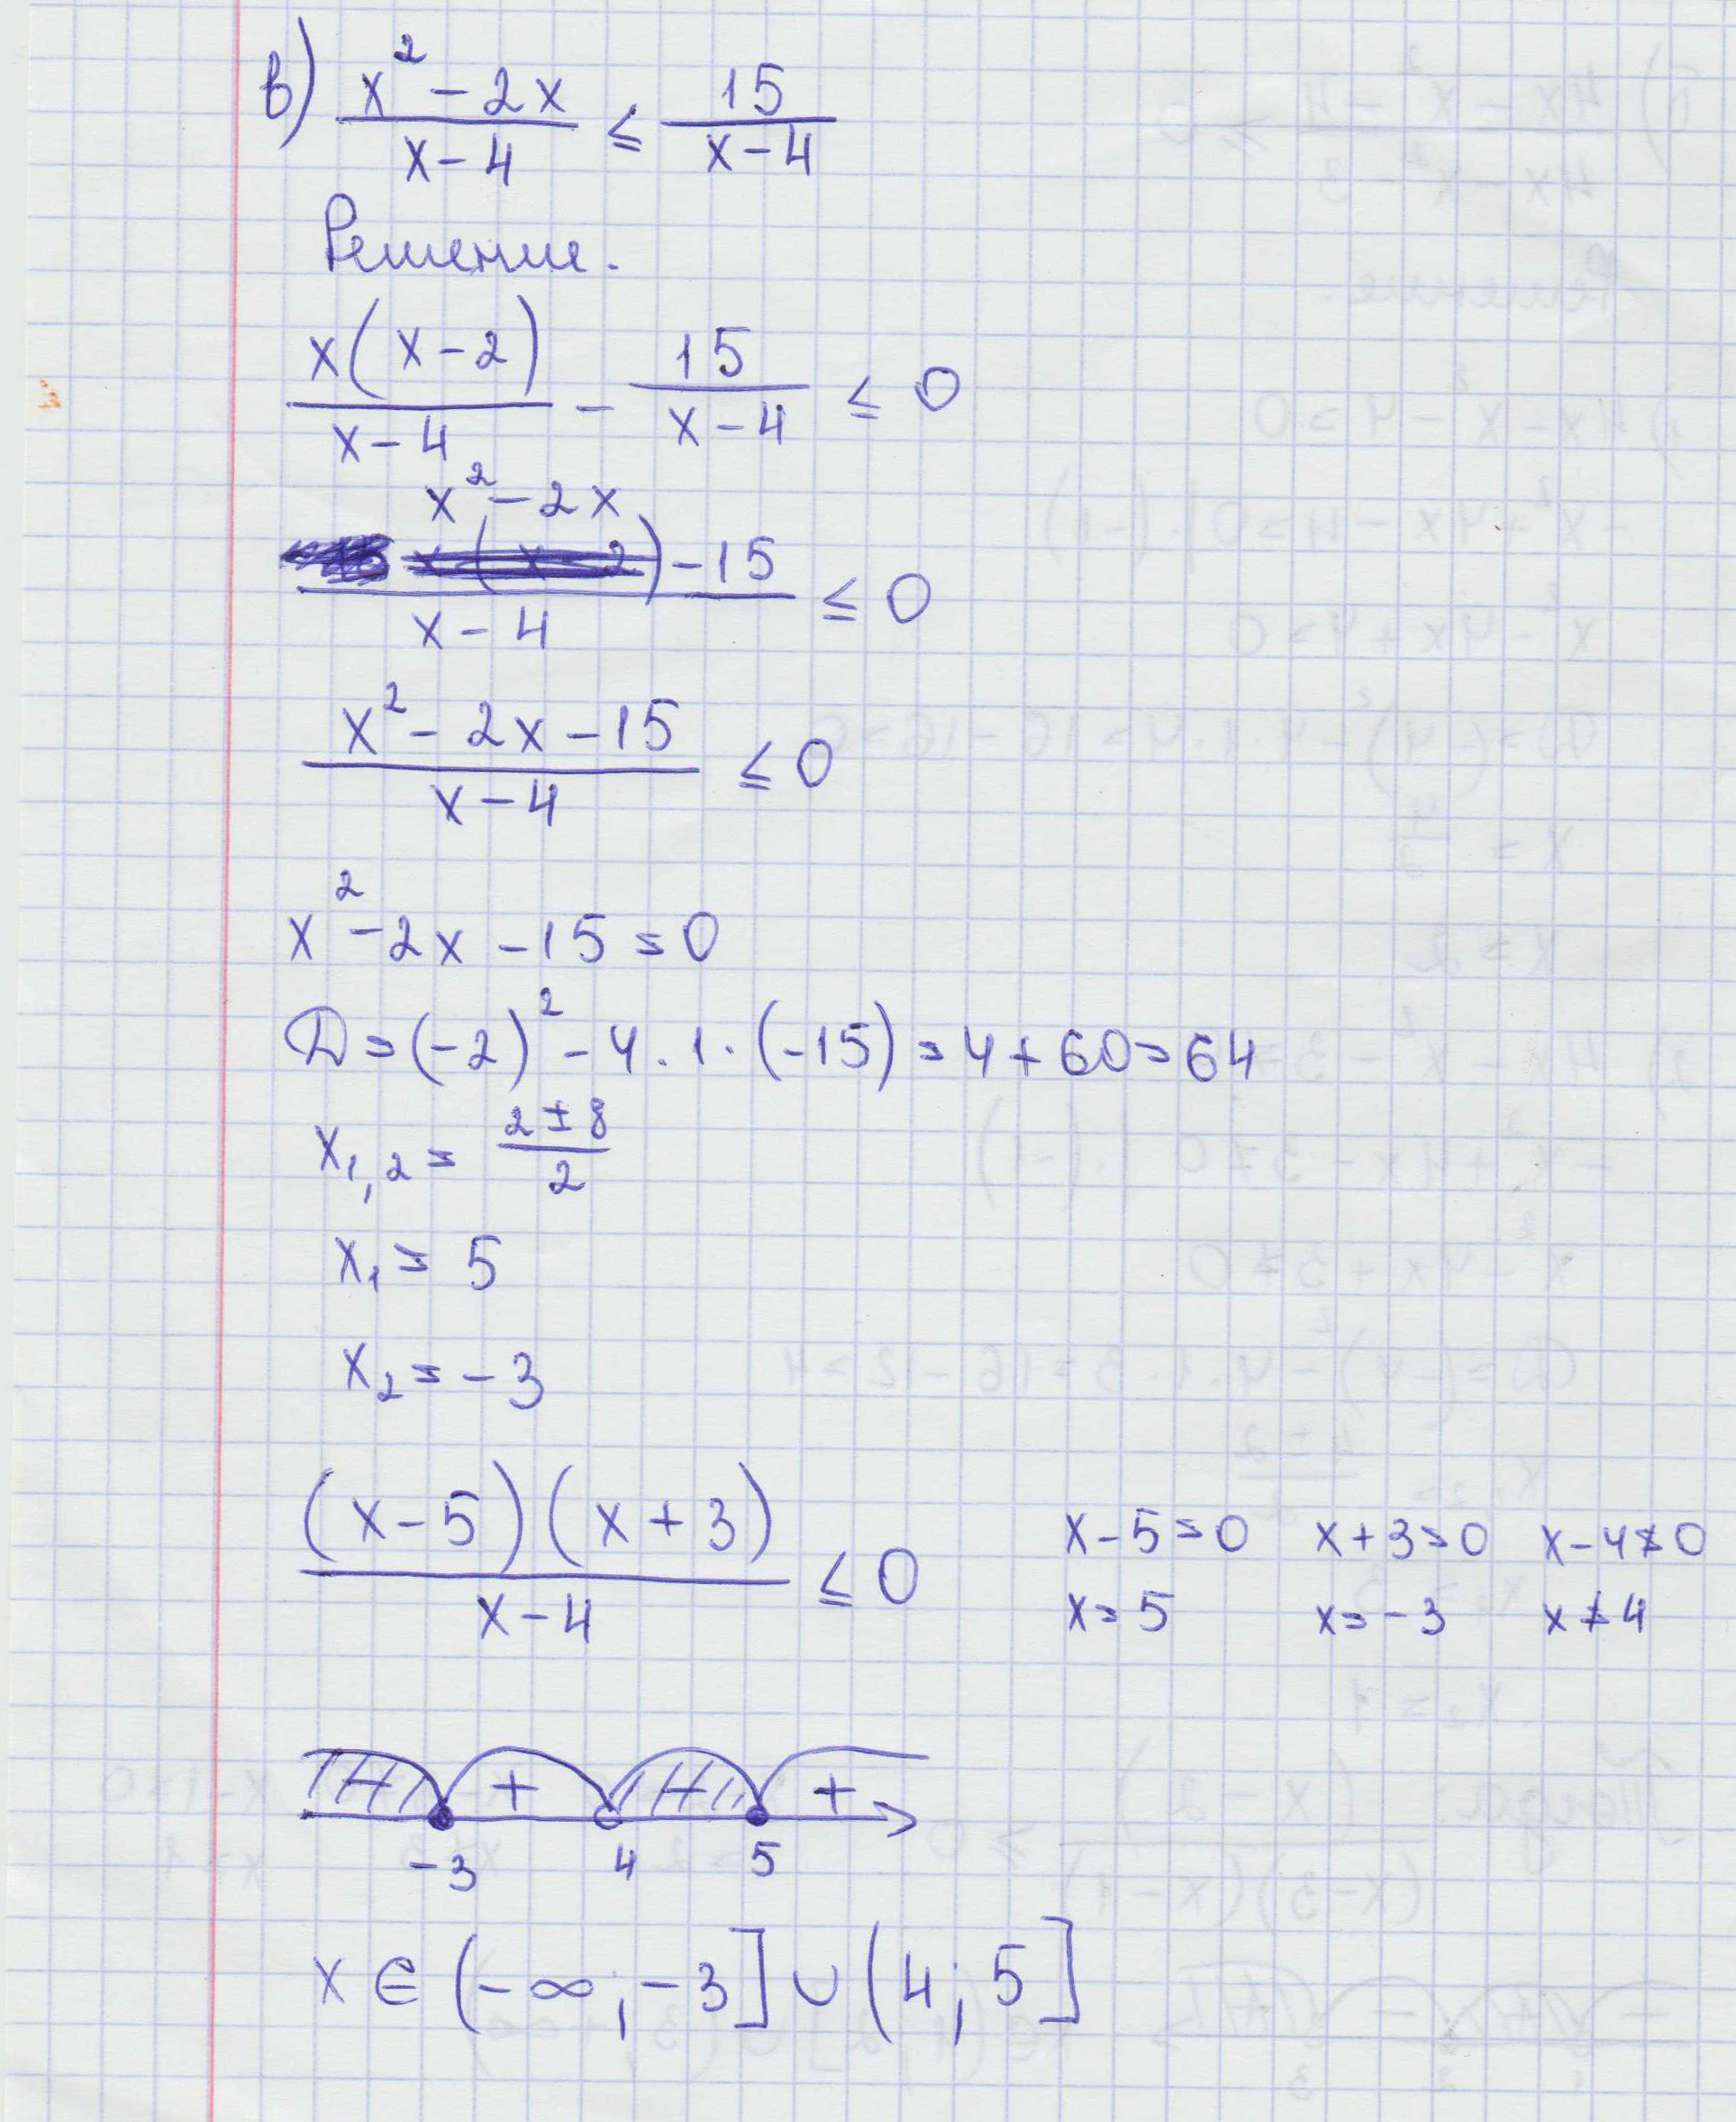 в) (x² - 2x)/(x - 4) ≤ 15/(x - 4)
Решение.
x(x - 2)/(x - 4) - 15/(x - 4) ≤ 0
(x² - 2x - 15)/(x - 4) ≤ 0
(x² - 2x - 15)/(x - 4) ≤ 0
x² - 2x - 15 = 0
D = (-2)² - 4 · 1 · (-15) = 4 + 60 = 64
x₁,₂ = (2 ± 8)/2
x₁ = 5
x₂ = -3
((x - 5)(x + 3))/(x - 4) ≤ 0
x - 5 = 0 x + 3 = 0 x - 4 ≠ 0
x = 5 x = -3 x ≠ 4
+ +
-3 4 5
x ∈ (-∞; -3] ∪ (4; 5]